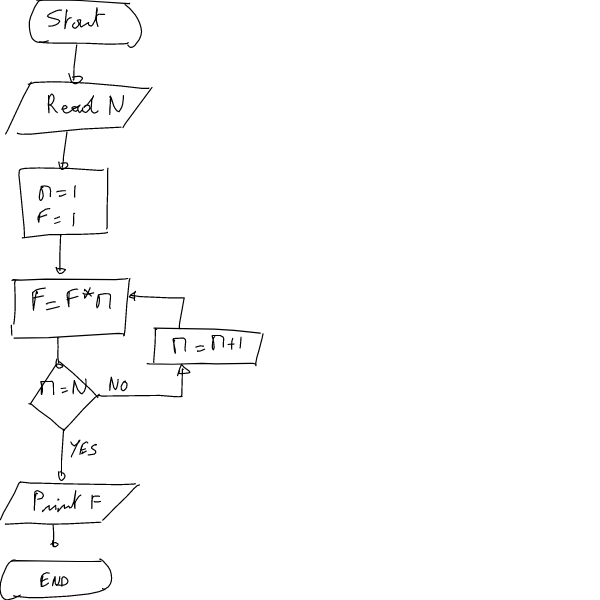 Start
Read N
n=1
F=1
F=F*n
n=n+1
n=N
NO
YES
Print F
END